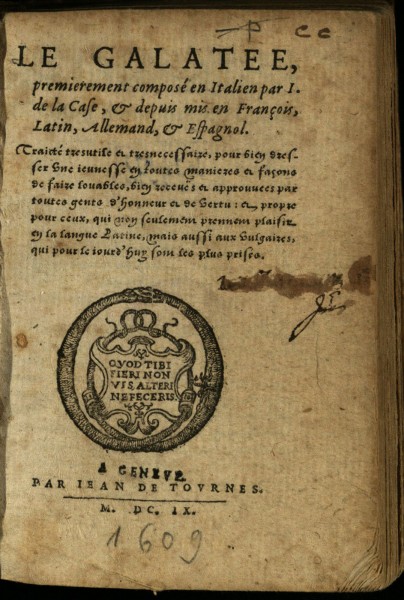 P C C
LE GALATEE,
premierement composé en Italien par I.
de la Case, & depuis mis en François,
Latin, Allemand, & Espagnol.
Traicté tresutile et tresnecessaire, pour bien dres-
ser vne ieunesse en toutes manieres et façons
de faire louables, bien receuës et approuuees par
toutes gents d'honneur et de Vertu: et propre
pour ceux, qui non seulement prennent plaisir
en la langue Latine, mais aussi aux vulgaires,
qui pour le iourd'huy sont les plus prisés.
QVOD TIBI
FIERI NON
VIS, ALTERI
NE FECERIS.
A GENEVE
PAR IEAN DE TOVRNES.
M. DC. IX.
1609